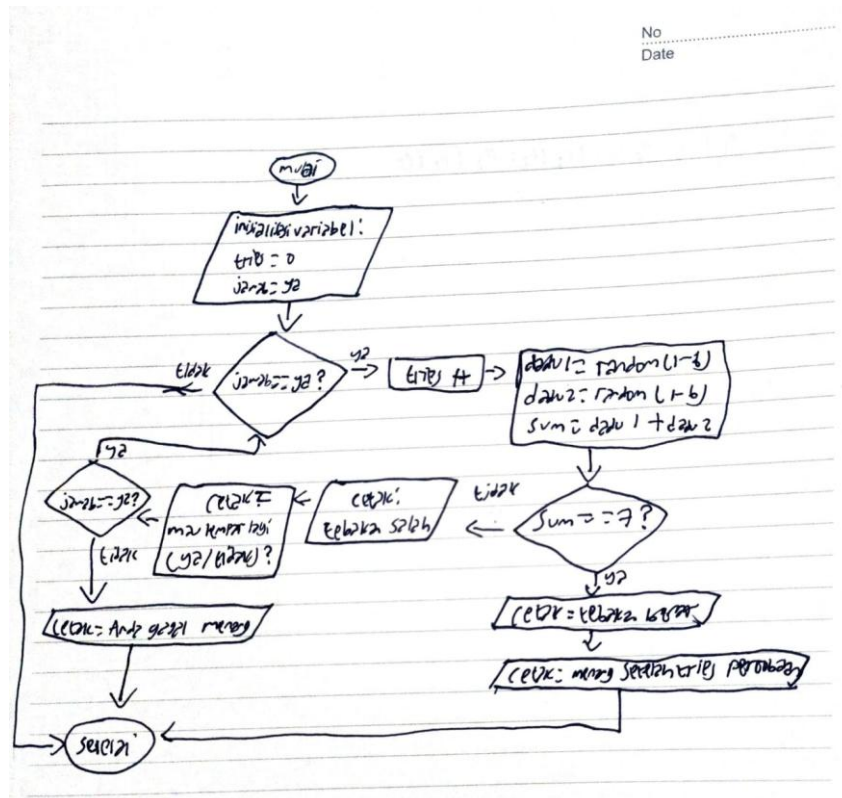 No
Date
mulai
inisialisasi variabel:
trial = 0
jawab = ya
jawab == ya?
tidak
ya
trial ++
dadu1 = random (1-6)
dadu2 = random (1-6)
sum = dadu1 + dadu2
sum == 7?
tidak
ya
cetak:
tebakan salah
cetak:
mau tebak lagi
(ya/tidak)?
jawab == ya?
ya
tidak
cetak = Anda gagal menang
cetak = tebakan benar
cetak = menang setelah trial percobaan
selesai